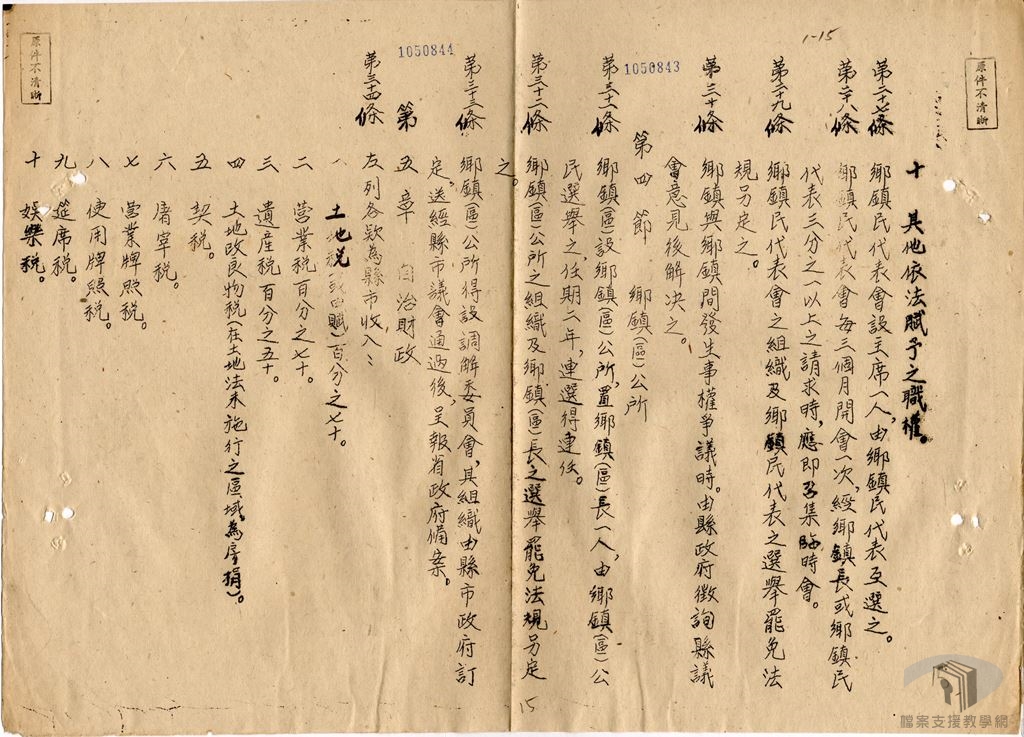 1-15
原件不清晰
十 其他依法賦予之職權。
第二十七條 鄉鎮民代表會設主席一人，由鄉鎮民代表互選之。
第二十八條 鄉鎮民代表會每三個月開會一次，經鄉鎮長或鄉鎮民
代表三分之一以上之請求時，應即召集臨時會。
第二十九條 鄉鎮民代表會之組織及鄉鎮民代表之選舉罷免法
規另定之。
第三十條 鄉鎮與鄉鎮間發生事權爭議時。由縣政府徵詢縣議
會意見後解決之。
1050843
第四節 鄉鎮（區）公所
第三十一條 鄉鎮（區）設鄉鎮（區）公所，置鄉鎮（區）長一人，由鄉鎮（區）公
民選舉之，任期二年，連選得連任。
第三十二條 鄉鎮（區）公所之組織及鄉鎮（區）長之選舉罷免法規另定
之。
15
第三十三條 鄉鎮（區）公所得設調解委員會，其組織由縣市政府訂
定。送經縣市議會通過後，呈報省政府備案。
1050844
第五章 自治財政
第三十四條 左列各款為縣市收入：
一 土地稅（或田賦）百分之七十。
二 營業稅百分之七十。
三 遺產稅百分之五十。
四 土地改良物稅（在土地法未施行之區域為房捐）。
五 契稅。
六 屠宰稅。
七 營業牌照稅。
八 使用牌照稅。
九 筵席稅。
十 娛樂稅。
原件不清晰
檔案支援教學網